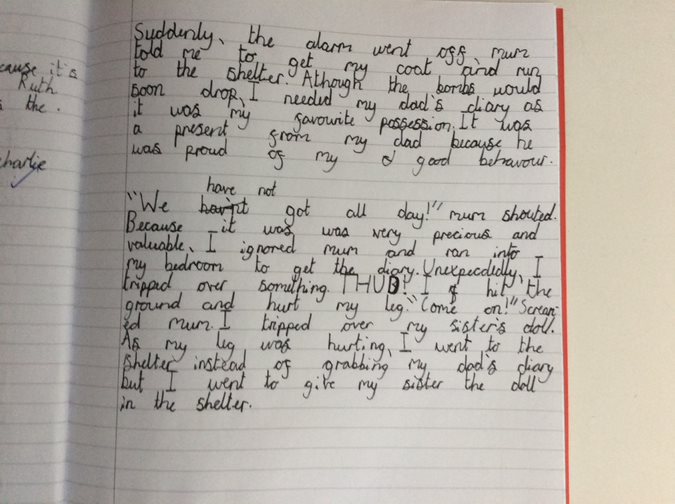 cause it's
Ruth
s the.
charlie
Suddenly, the alarm went off mum
told me to get my coat and run
to the shelter. Athough the bombs would
soon drop, I needed my dad's diary as
it was my favourite possession. It was
a present from my dad because he
was proud of my good behavour.
have not
"We hav'nt got all day!" mum shouted.
Because it was was very precious and
valuable, I ignored mum and ran into
my bedroom to get the diary. Unexpecdedly, I
tripped over something. THUD! I hit the
ground and hurt my leg. "Come on!" Scream
ed mum. I tripped over my sister's doll.
As my leg was hurting, I went to the
shelter instead of grabbing my dad's diary
but I went to give my sister the doll
in the shelter.